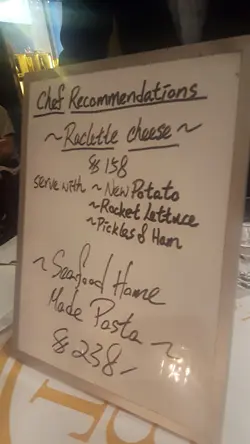 Chef Recommendations
~ Raclette cheese ~
$ 158
serve with ~ New Potato
~ Rocket Lettuce
~ Pickles & Ham
~ Seafood Home
Made Pasta ~
$ 238.-